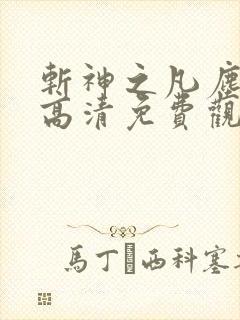 斬神之凡塵
高清免費觀
馬丁西科塞